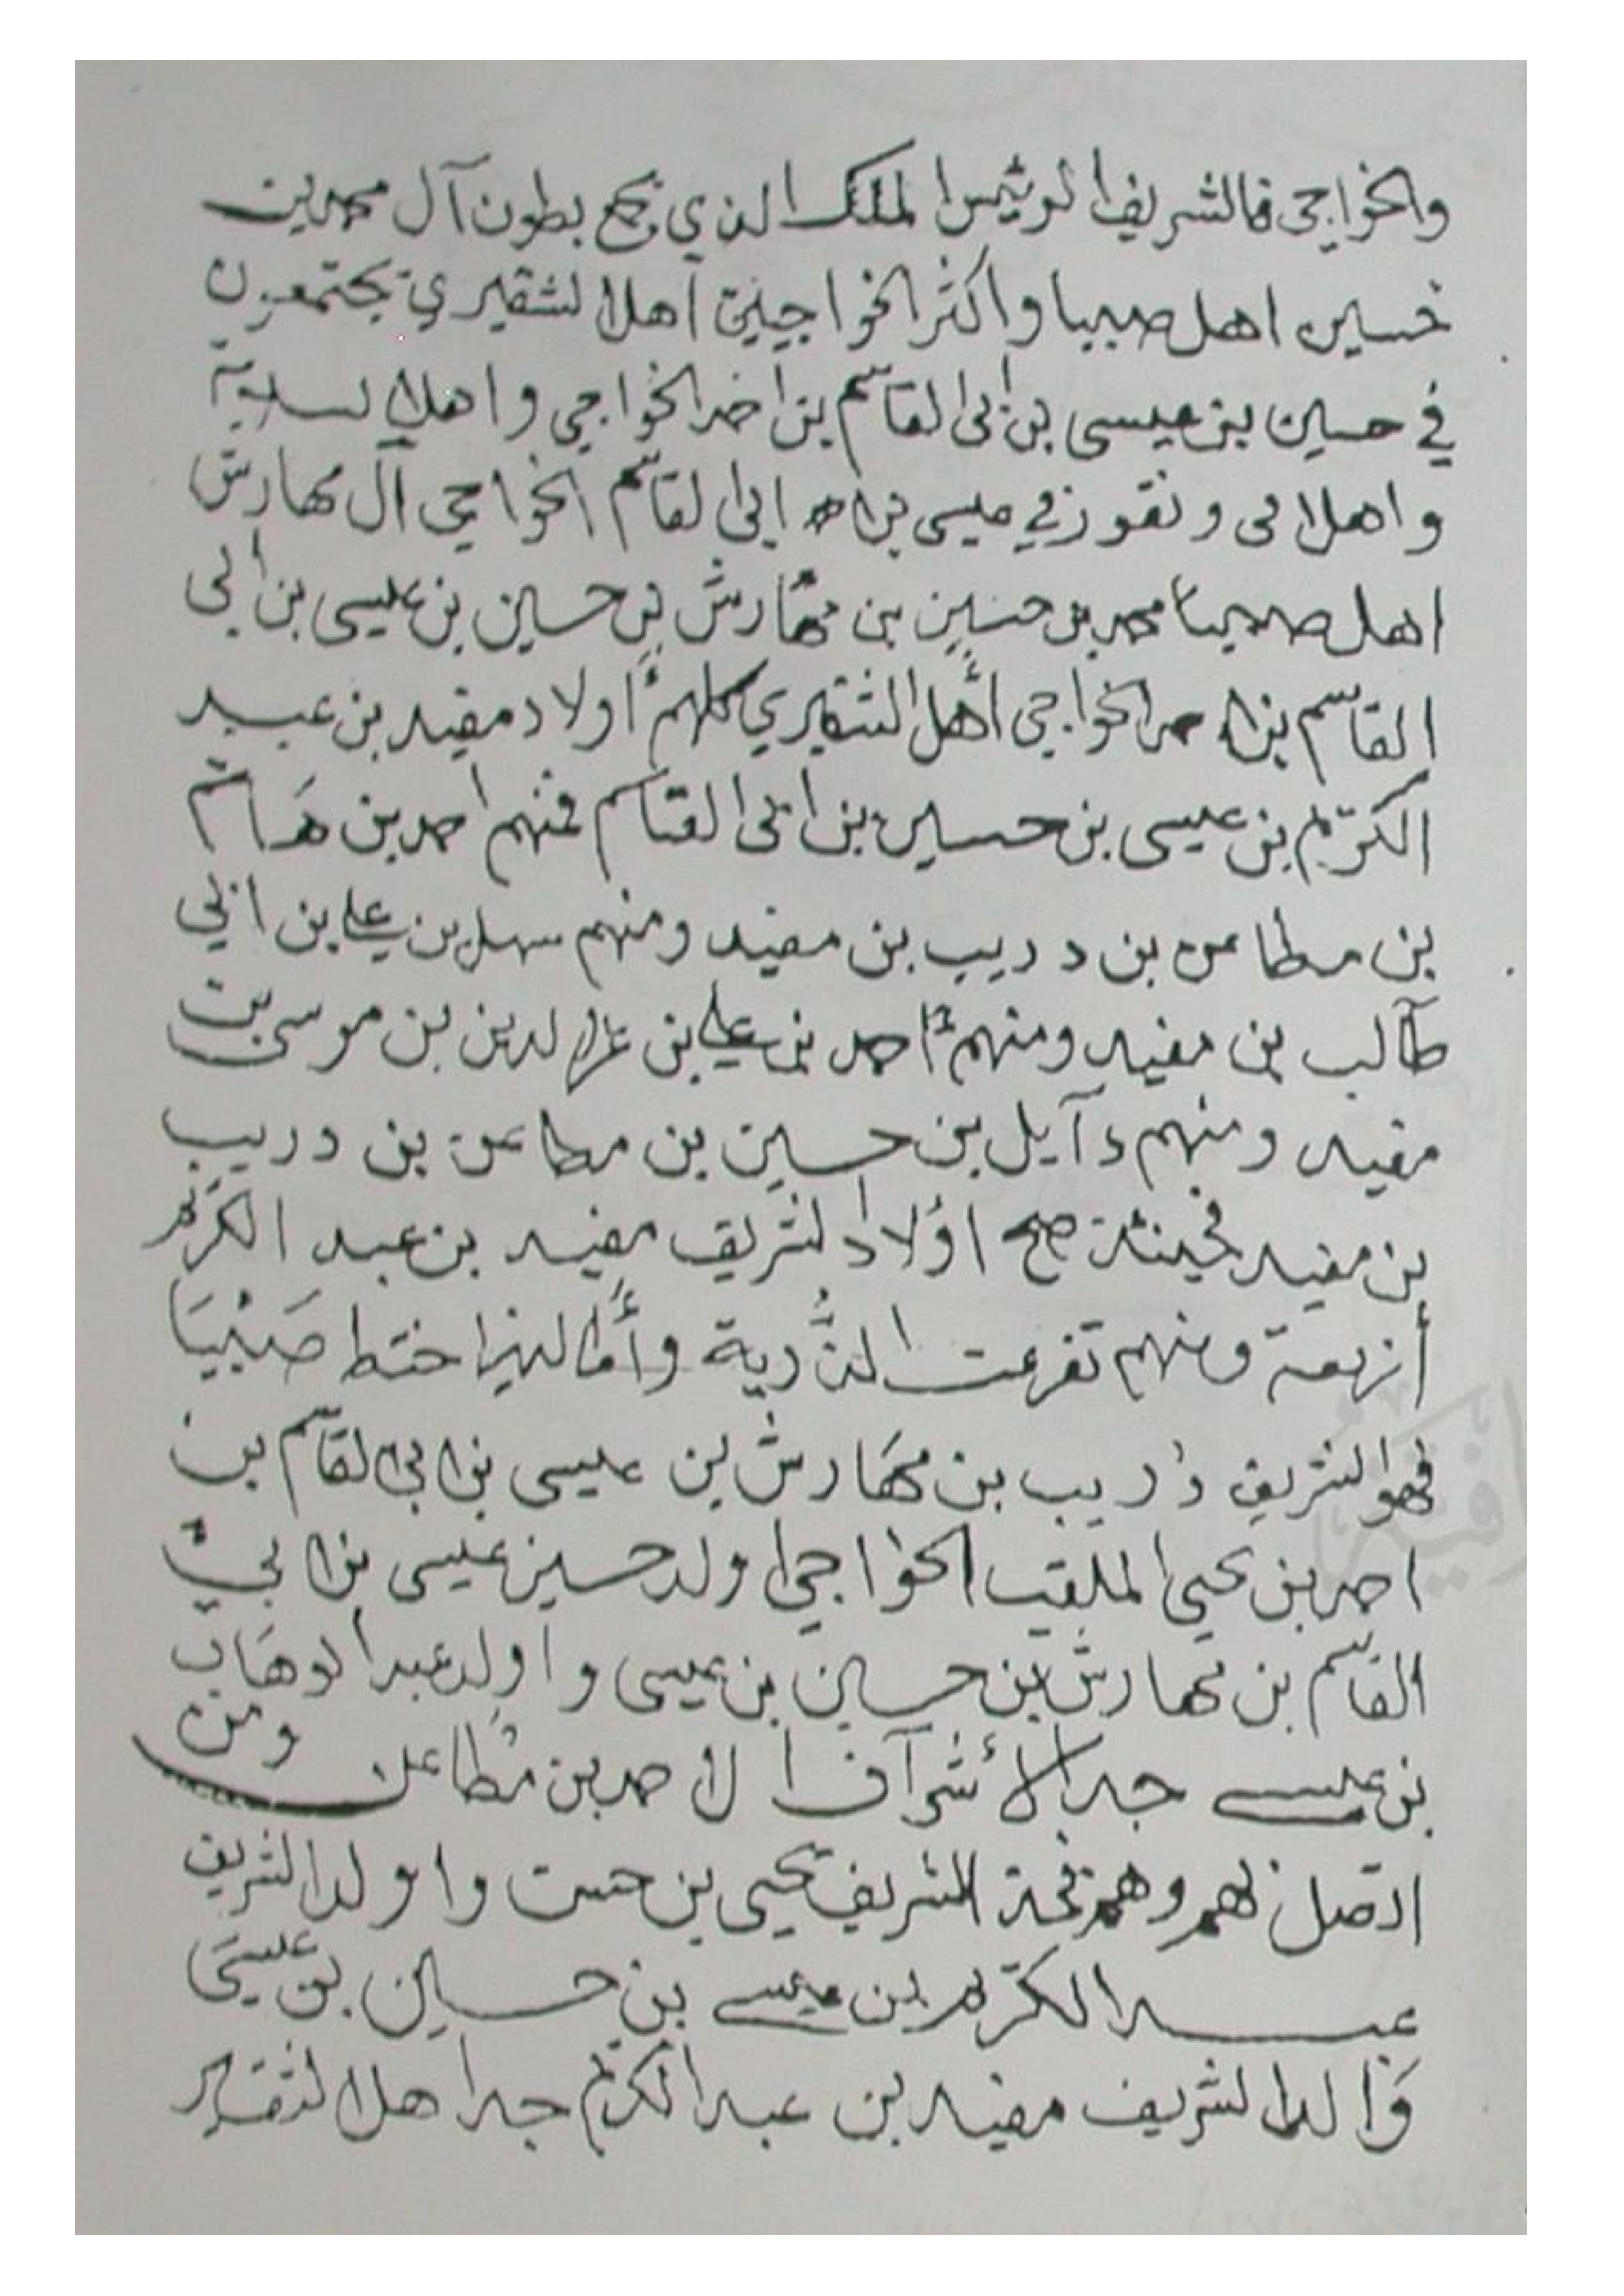 والخواجي فالشريف الرئيس الملك الذي يجمع بطون آل محمد بن
حسين اهل صبيا واكثر الخواجيين اهل الشقيري يجتمعون
في حسين بن عيسى بن ابي القاسم بن احمد الخواجي واهل السلامة
واهل ونقوز في عيسى بن ابي القاسم الخواجي آل مهارش
اهل صبيا محمد بن حسين بن مهارش بن حسين بن عيسى بن أبي
القاسم بن احمد الخواجي أهل الشقيري كلهم أولاد مفيد بن عبد
الكريم بن عيسى بن حسين بن ابي القاسم فمنهم احمد بن هاشم
بن مطاعن بن دريب بن مفيد ومنهم سهل بن علي بن ابي
طالب بن مفيد ومنهم احمد بن علي بن عز الدين بن موسى بن
مفيد ومنهم وآيل بن حسين بن مطاعن بن دريب
بن مفيد فحينئذ صح اولاد الشريف مفيد بن عبد الكريم
أربعة ومنهم تفرعت الذرية وأما الذي اختط صَبْيَا
فهو الشريف دريب بن مهَارش بن عيسى بن ابي القاسم بن
احمد بن يحيى الملقب الخواجي اولد حسين عيسى بن ابي
القاسم بن مهارش بن حسين بن عيسى واولد عبد الوهاب
بن عيسى جد الأشرآف ال احمد بن مُطاعن ومن
اتصل بهم وهم فخذ الشريف يحيى بن حسن واولد الشريف
عبد الكريم بن عيسى بن حسين بن عيسى
وَالد الشريف مفيد بن عبد الكريم جد اهل الشقير